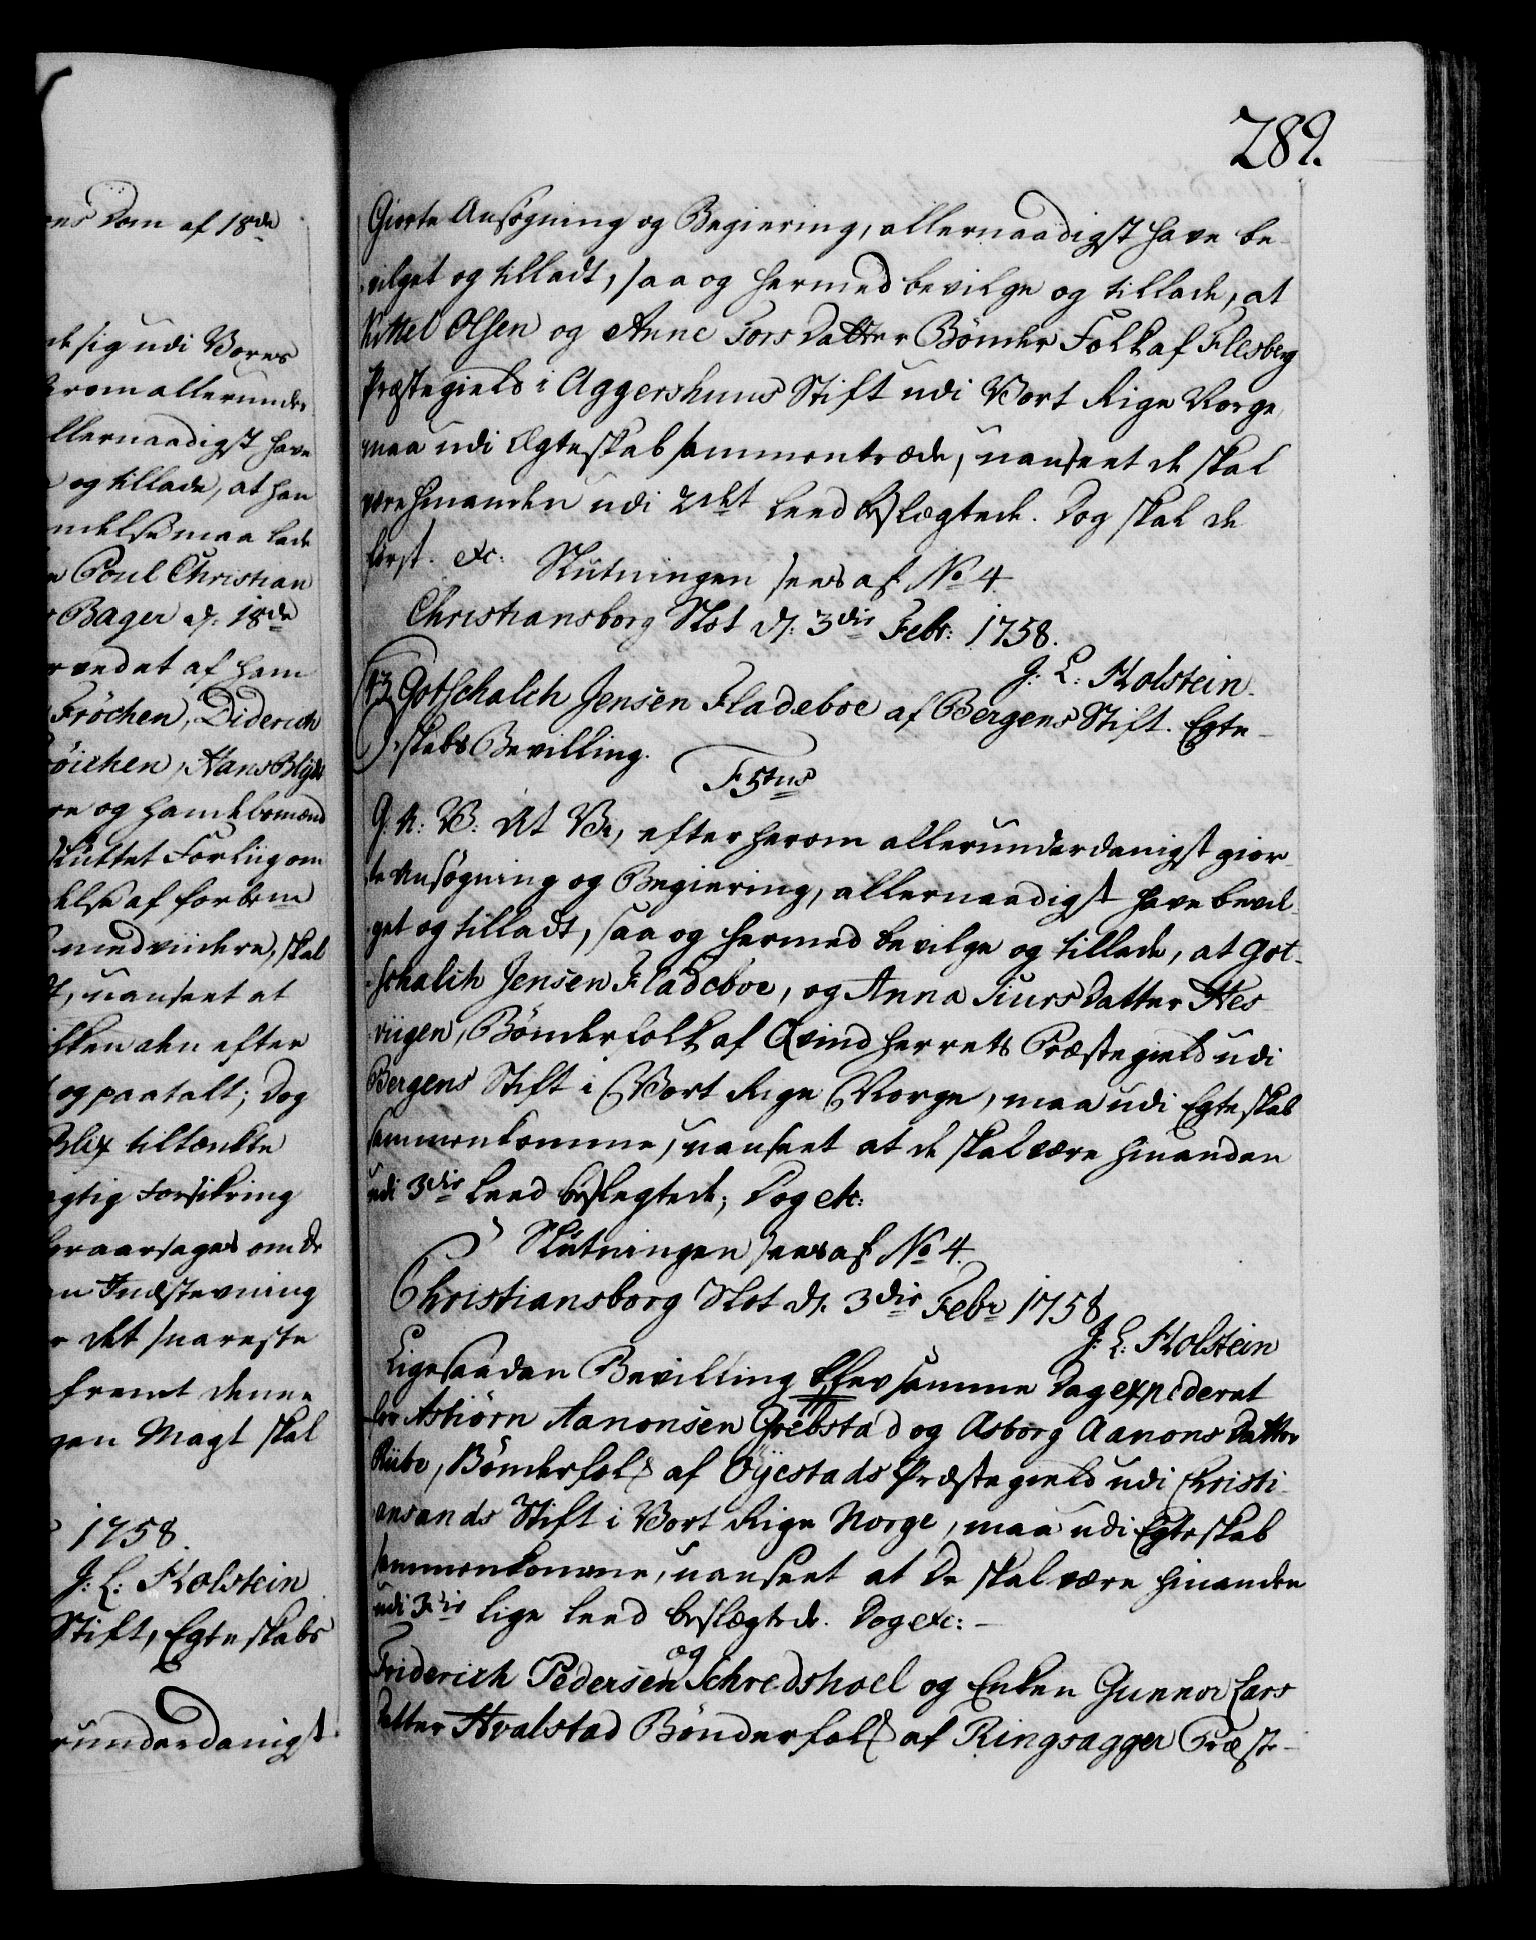 ens Dom af 18de
sig udi Vores
erom allerunder
llernaadigst have
og tillade, at han
ndelse maa lade
Poul Christian
Bager d: 18de
vedet af ham
Fröchen, Diderich
öichen, Hans Blyd
re og Handelsmænd
sluttet Forliig om
else af forbem
medvindere, skal
, uanseet at
den efter
og paatalt; Dog
Blix tiltænkte
gtig Forsikring
foraarsages om de
en Indstevning
det snareste
fremt denne
gen Magt skal
1758.
J: L: Holstein
Stift, Egteskabs
runderdanigst
289.
Giorte Ansøgning og Begiering, allernaadigst have be-
vilget og tilladt, saa og hermed bevilge og tillade, at
Kittel Olsen og Anne Tors Datter Bönder Folk af Flesberg
Præstegield i Aggershuus Stift udi Vort Rige Norge,
maa udi Ægteskab sammentræde, uanseet de skal
være hinanden udi 2det Leed Beslægtede. Dog skal de
först. etc: Slutningen sees af No 4.
Christiansborg Slot d: 3die Febr: 1758.
J: L: Holstein.
43 Gotschalch Jensen Fladeboe af Bergens Stift. Egte-
skabs Bevilling.
F 5tus
G: A: V: At Vi, efter herom allerunderdanigst gior-
te Ansögning og Begiering, allernaadigst have bevil-
get og tilladt, saa og hermed bevilge og tillade, at Got-
schalch Jensen Fladeboe, og Anna Siurs Datter Hes-
viigen, Bönderfolk af Qvindherrets Præstegield udi
Bergens Stift i Vort Rige Norge, maa udi Egteskab
sammenkomme, uanseet at de skal være hinanden
udi 3die Leed beslegtede; Dog etc:
Slutningen sees af No 4.
Christiansborg Slot d. 3die Febr 1758
J: L: Holstein
Ligesaadan Bevilling blev samme Dag expederet
for Asbiörn Aanonsen Grebstad og Asborg Aanons Datter
Riibe, Bönderfolk af Öyestads Præstegield udi Christi-
ansands Stift i Vort Rige Norge, maa udi Egteskab
sammenkomme, uanseet at De skal være hinanden
udi 3die lige Leed beslægtede. Dog etc: -
og
Friderich Pedersen Schredshoel og Enken Gunnor Lars
Datter Hvalstad Bönderfolk af Ringsagger Præste-